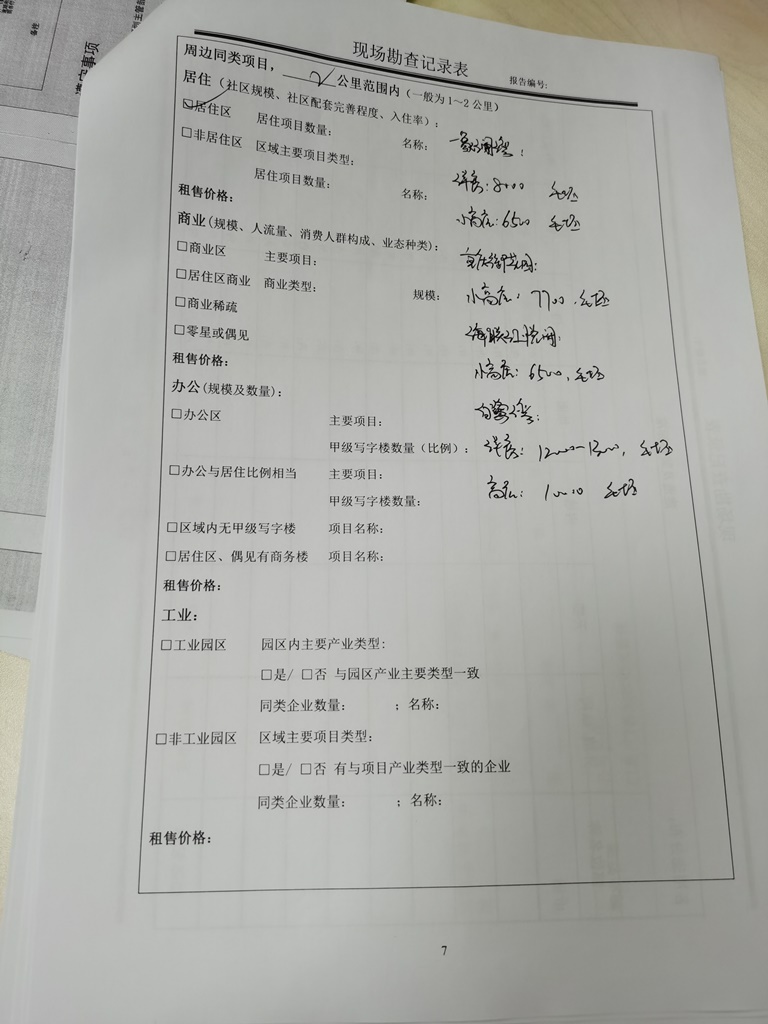 备栓
事项
现场勘查记录表
报告编号:
周边同类项目，2公里范围内（一般为1～2公里）
居住（社区规模、社区配套完善程度、入住率）：
☑居住区 居住项目数量： 名称：
□非居住区 区域主要项目类型：
居住项目数量： 名称： 洋房：8000 毛坯
租售价格： 小高层：6500 毛坯
商业(规模、人流量、消费人群构成、业态种类)：
□商业区 主要项目：
□居住区商业 商业类型： 规模： 小高层：7700，毛坯
□商业稀疏
□零星或偶见 小高层：6500，毛坯
租售价格：
办公(规模及数量)：
□办公区 主要项目：
甲级写字楼数量（比例）： 洋房：12000-13000，毛坯
□办公与居住比例相当 主要项目： 高层： 毛坯
甲级写字楼数量：
□区域内无甲级写字楼 项目名称：
□居住区、偶见有商务楼 项目名称：
租售价格：
工业：
□工业园区 园区内主要产业类型:
□是/ □否 与园区产业主要类型一致
同类企业数量： ；名称：
□非工业园区 区域主要项目类型：
□是/ □否 有与项目产业类型一致的企业
同类企业数量： ；名称：
租售价格：
7